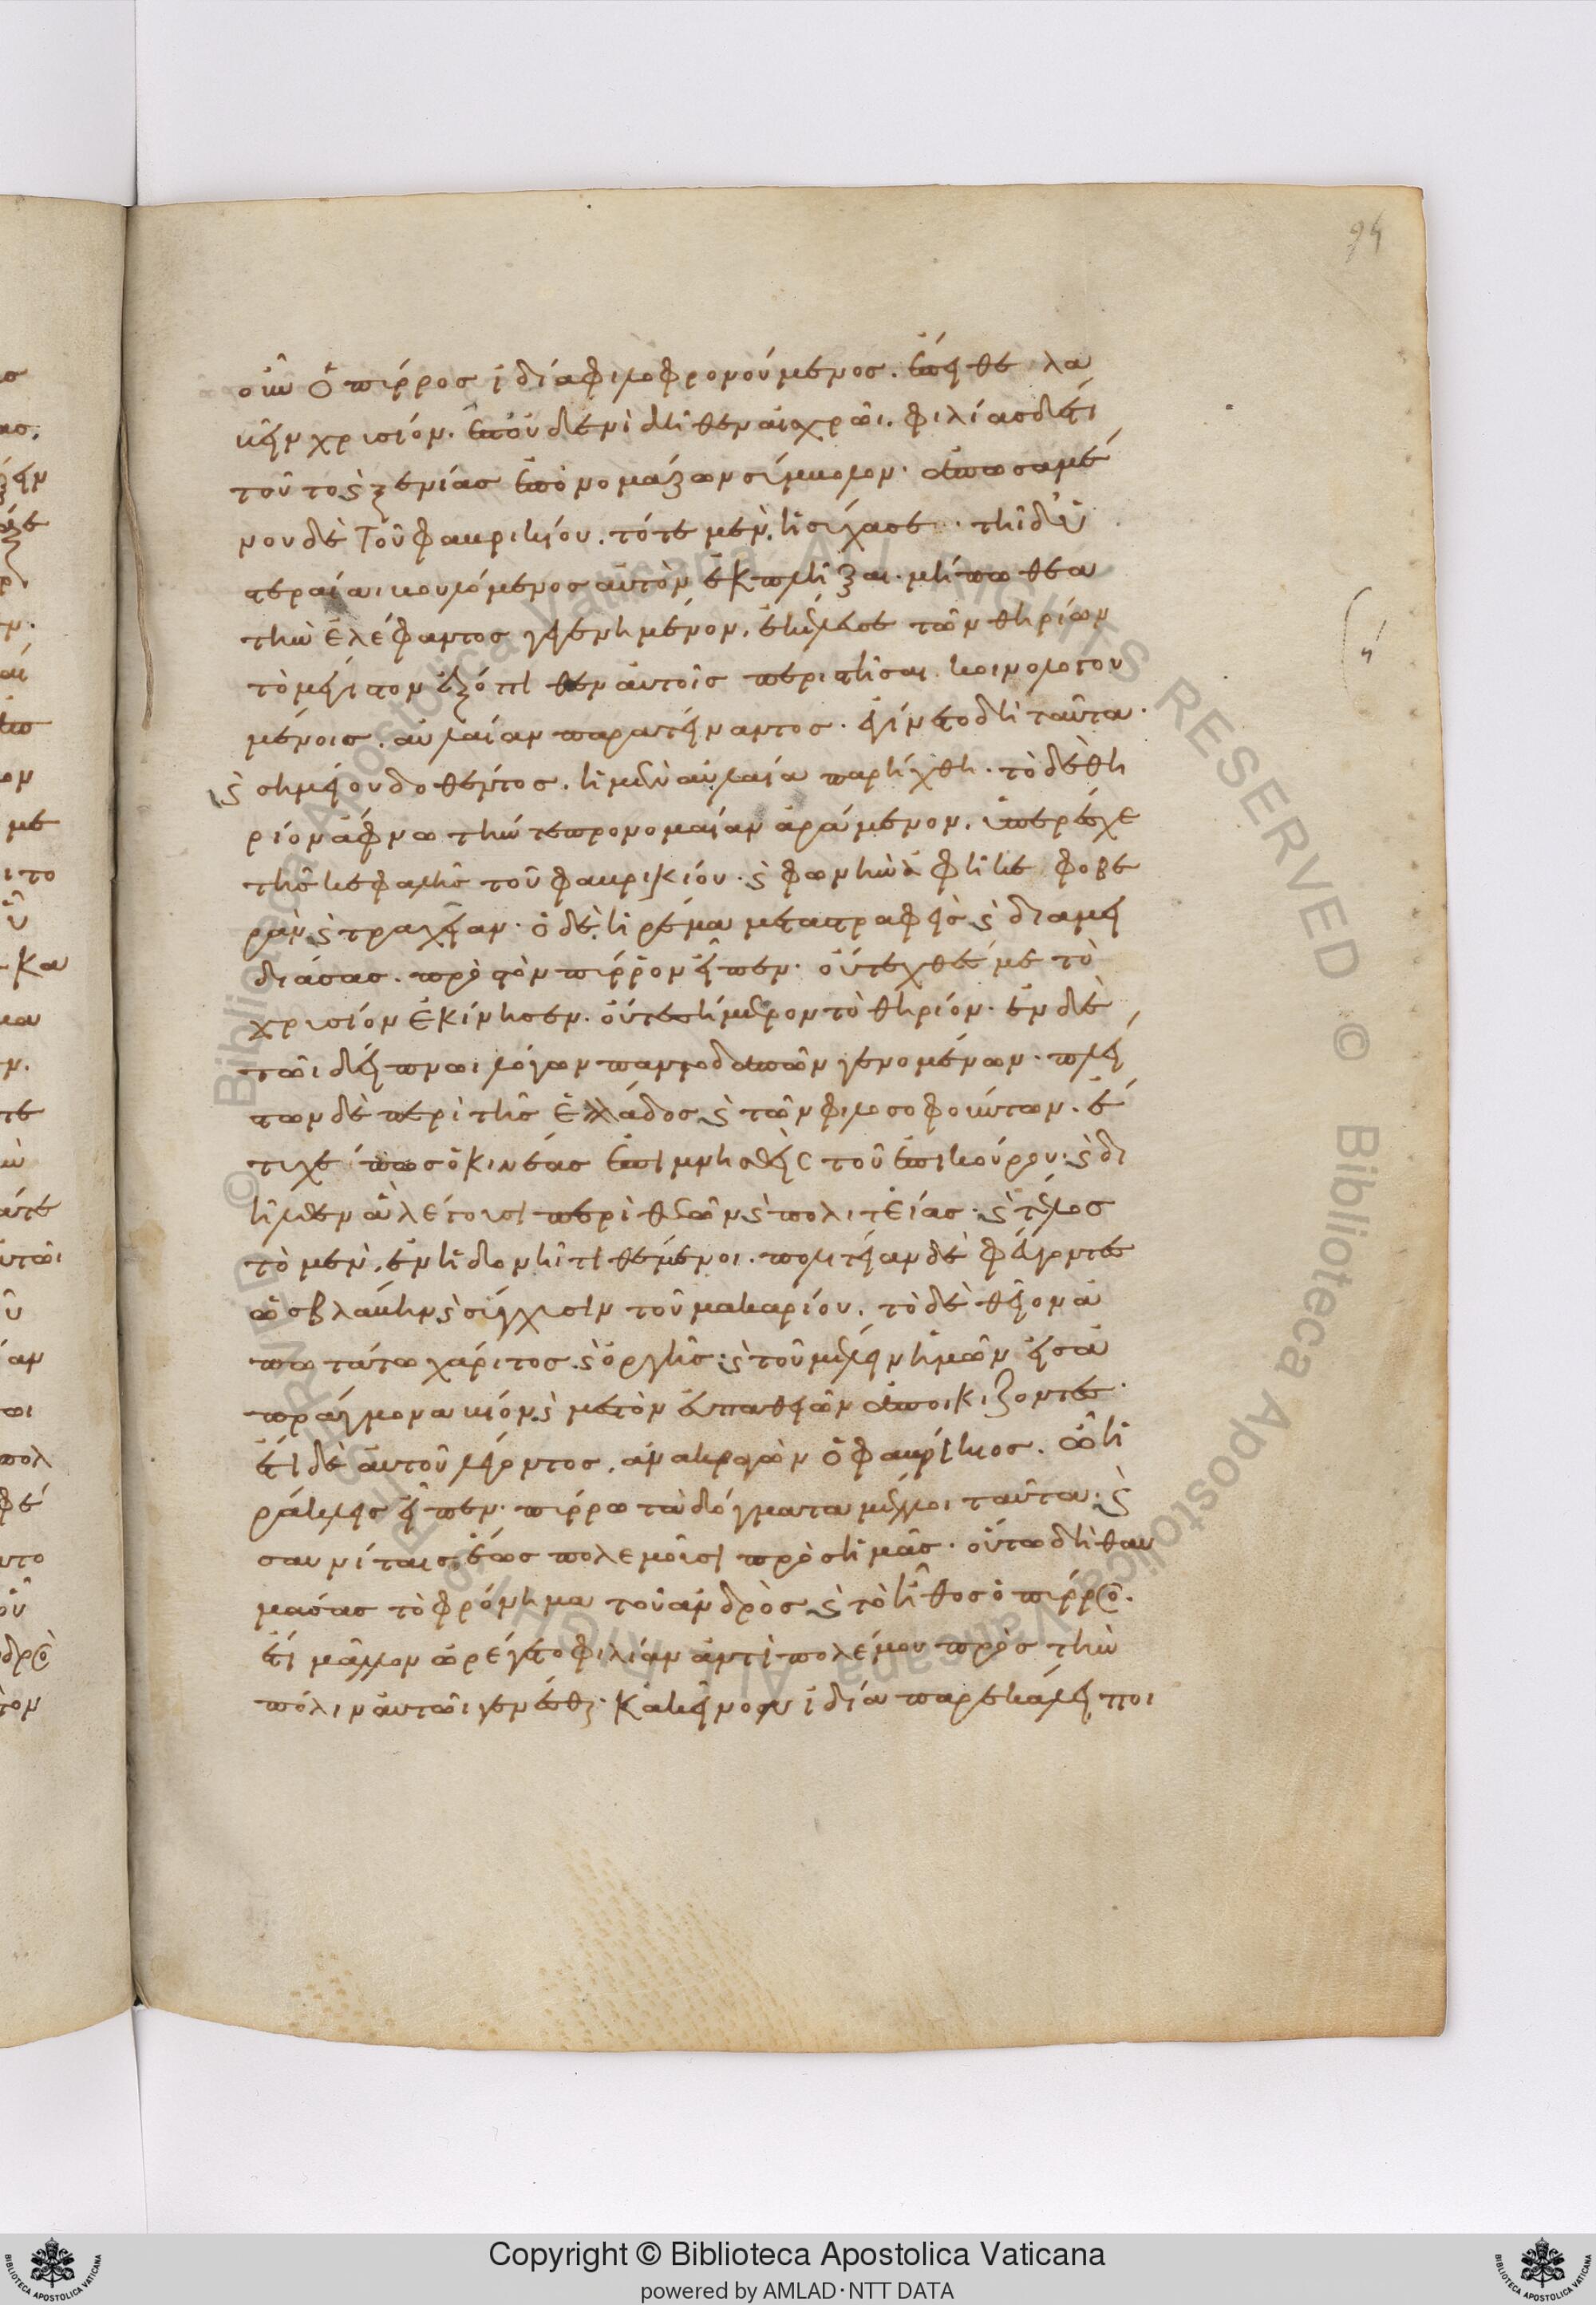 94
οὖν ὁ πύρρος ἰδία φιλοφρονούμενος. ἔπειθε λα
βεῖν χρυσίον. ἐπ' οὐδενὶ δῆθεν αἰσχρῶι. φιλίας δέ τι
τοῦτο καὶ ξενίας ἐπονομάζων σύμβολον. ἀπωσαμέ
νου δὲ τοῦ φαβρικίου. τότε μὲν ἡσύχασε. τῆι δ' ὑ
στεραίαι βουλόμενος αὐτὸν ἐκπλῆξαι. μήπω θεα
τὴν ἐλέφαντος γεγενημένον. ἐκέλευσε τῶν θηρίων
τὸ μέγιστον ἐξόπισθεν αὐτοῖς περιστῆσαι κοινολογου
μένοις. αὐλαίαν παρατείναντος. ἐγίνετο δὴ ταῦτα.
καὶ σημείου δοθέντος. ἡ μὲν αὐλαία παρήχθη. τὸ δὲ θη
ρίον ἄφνω τήν τε προνομαίαν ἀράμενον. ὑπερέσχε
τῆς κεφαλῆς τοῦ φαβρικίου. καὶ φωνὴν ἀφῆκε φοβε
ρὰν καὶ τραχεῖαν. ὁ δὲ ἠρέμα μεταστραφεὶς καὶ διαμει
διάσας. πρὸς τὸν πύρρον εἶπεν. οὔτε χθές με τὸ
χρυσίον ἐκίνησεν. οὔτε σήμερον τὸ θηρίον. ἐν δὲ
τῶι δείπνωι λόγων παντοδαπῶν γενομένων. πλεί
στων δὲ περὶ τῆς ἑλλάδος καὶ τῶν φιλοσοφούντων. ἔ
τυχέ πως ὁ κινέας ἐπιμνησθεὶς τοῦ ἐπικούρου. καὶ δι
ῆλθεν ἃ λέγουσι περὶ θεῶν καὶ πολιτείας. καὶ τέλος
τὸ μὲν ἐν ἡδονῆι τιθέμενοι. πολιτείαν δὲ φεύγοντες
ὡς βλάβην καὶ σύγχυσιν τοῦ μακαρίου. τὸ δὲ θεῖον ἀ
πωτάτω χάριτος. καὶ ὀργῆς. καὶ τοῦ μέλειν ἡμῶν εἰς ἀ
πράγμονα βίον καὶ μεστὸν εὐπαθειῶν ἀποικίζοντες.
ἔτι δὲ αὐτοῦ λέγοντος. ἀνακραγὼν ὁ φαβρίκιος. ὦ ἡ
ράκλεις εἶπεν. πύρρω τὰ δόγματα μέλλοι ταῦτα. καὶ
σαυνίταις ἕως πολεμοῦσι πρὸς ἡμᾶς. οὕτω δὴ θαυ
μάσας τὸ φρόνημα τοῦ ἀνδρὸς καὶ τὸ ἦθος ὁ πύρρος.
ἔτι μᾶλλον ὠρέγετο φιλίαν ἀντὶ πολέμου πρὸς τὴν
πόλιν αὐτῶι γενέσθαι. κἀκεῖνον ἰδία παρεκάλει ποι
Copyright © Biblioteca Apostolica Vaticana
powered by AMLAD·NTT DATA